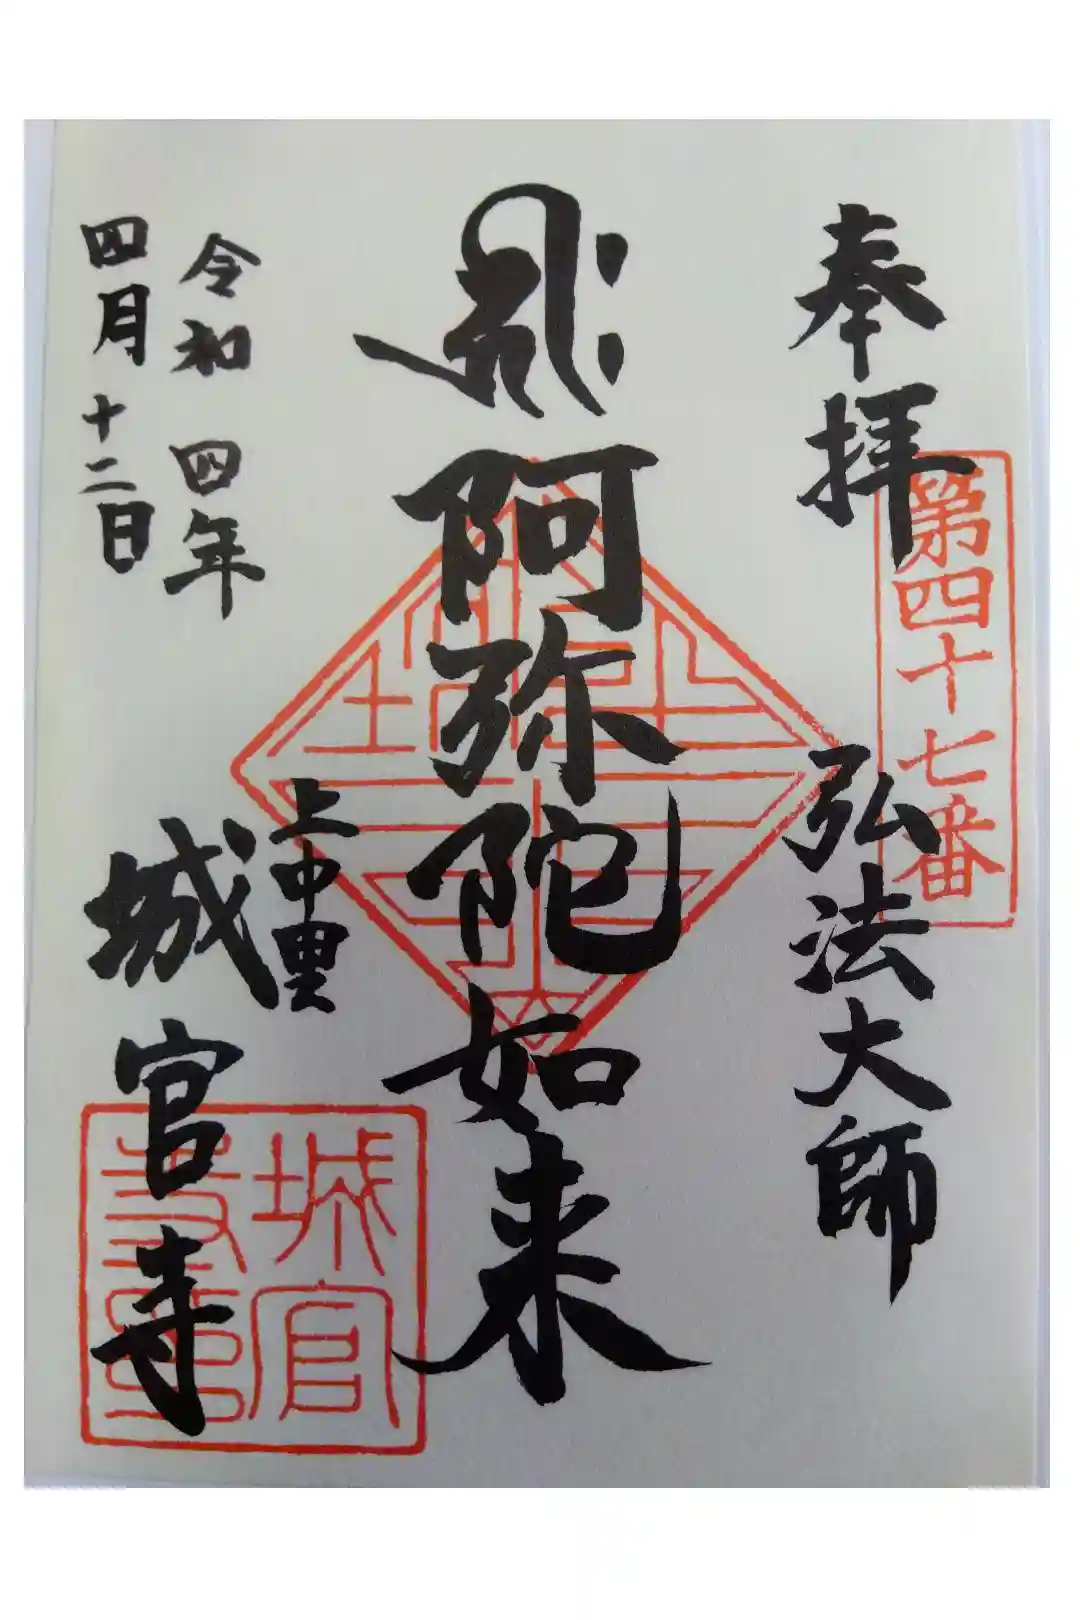 奉拝
第四十七番
弘法大師
阿弥陀如来
上中里
城官寺
城官
令和四年
四月十二日